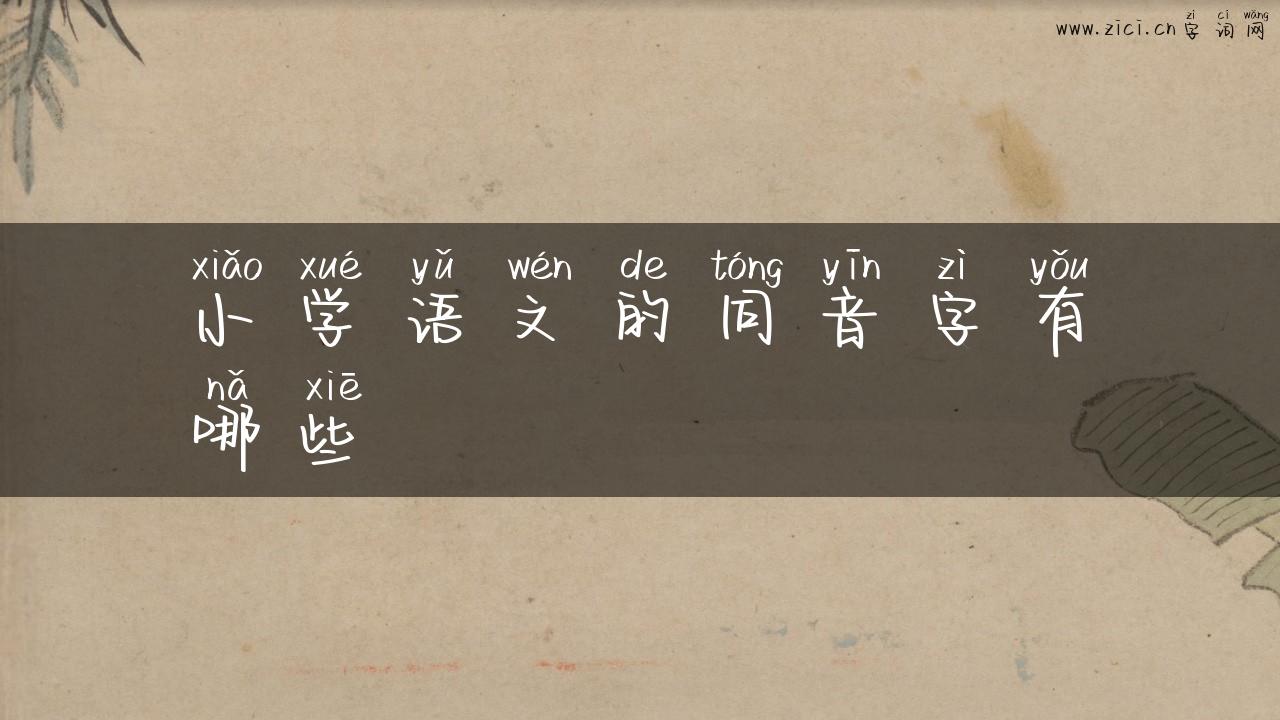 zì cí wǎng
www.zici.cn 字词网
xiǎo xué yǔ wén de tóng yīn zì yǒu
小学语文的同音字有
nǎ xiē
哪些